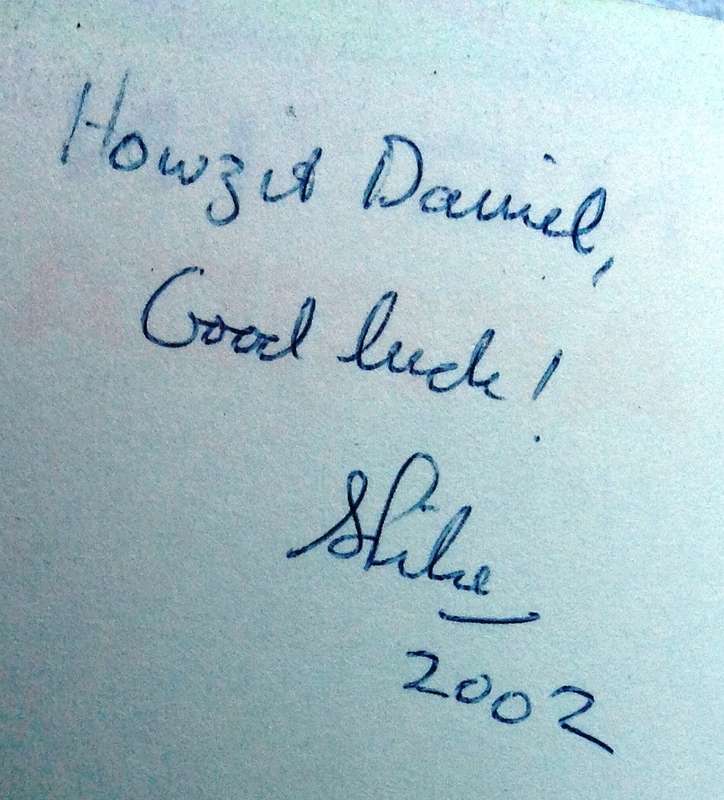 Howzit Daniel,
Good luck!
Spike
2002